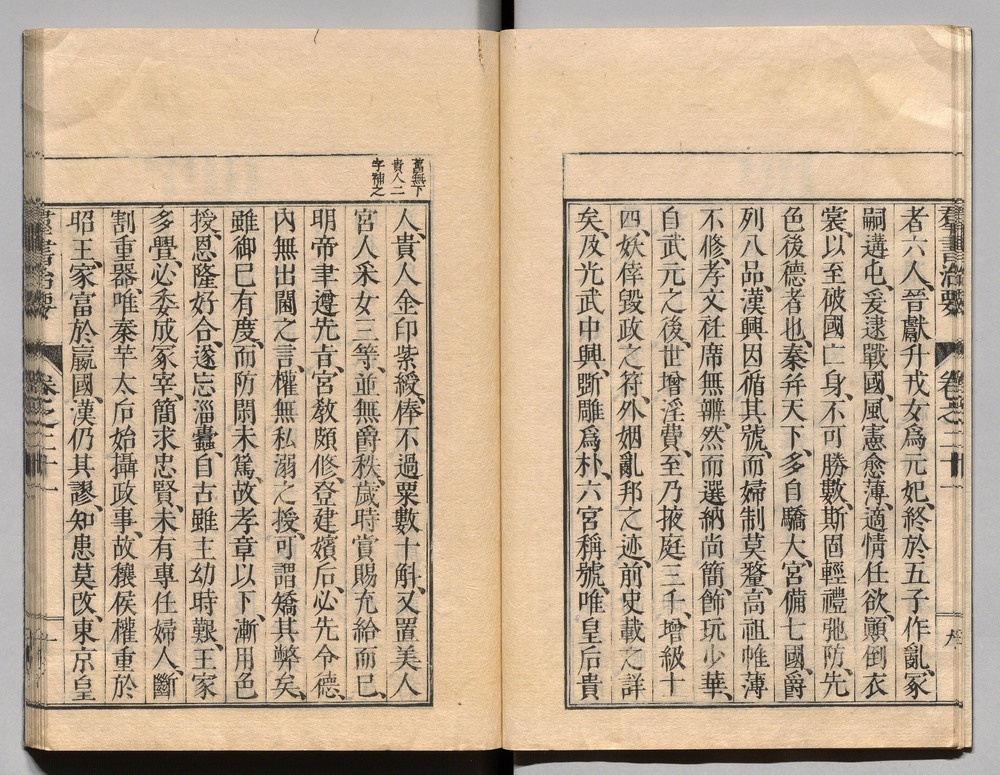 群書治要
卷之二十一
九
者六人、晉獻升戎女爲元妃、終於五子作亂、冢
嗣遘屯、爰逮戰國、風憲愈薄、適情任欲、顚倒衣
裳、以至破國亡身、不可勝數、斯固輕禮弛防、先
色後德者也、秦幷天下、多自驕大、宮備七國、爵
列八品、漢興因循其號、而婦制莫釐、高祖帷薄
不修、孝文衽席無辯、然而選納尚簡、飾玩少華、
自武元之後、世增淫費、至乃掖庭三千、增級十
四、妖倖毀政之符、外姻亂邦之迹、前史載之詳
矣、及光武中興、斲雕爲朴、六宮稱號、唯皇后貴
舊無下
貴人二
字補之
人、貴人金印紫綬、俸不過粟數十斛、又置美人
宮人采女三等、並無爵秩、歲時賞賜充給而已、
明帝聿遵先旨、宮敎頗修、登建嬪后、必先令德、
內無出閫之言、權無私溺之授、可謂矯其弊矣、
雖御已有度、而防閑未篤、故孝章以下、漸用色
授、恩隆好合、遂忘淄蠹、自古雖主幼時艱、王家
多釁、必委成冢宰、簡求忠賢、未有專任婦人斷
割重器、唯秦芈太后始攝政事、故穰侯權重於
昭王、家富於嬴國、漢仍其謬、知患莫改、東京皇
群書治要
卷之二十一